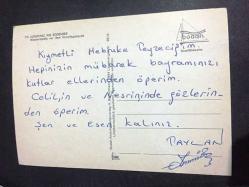 Kıymetli Mebruke Teyzeciğim.
Hepinizin mübarek bayramınızı
kutlar ellerinden öperim.
Celil,in ve Nesrininde gözlerin-
den öperim.
Şen ve Esen kalınız.
TAYLAN